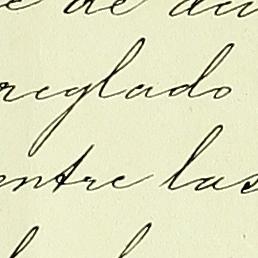 de
reglado
entre las